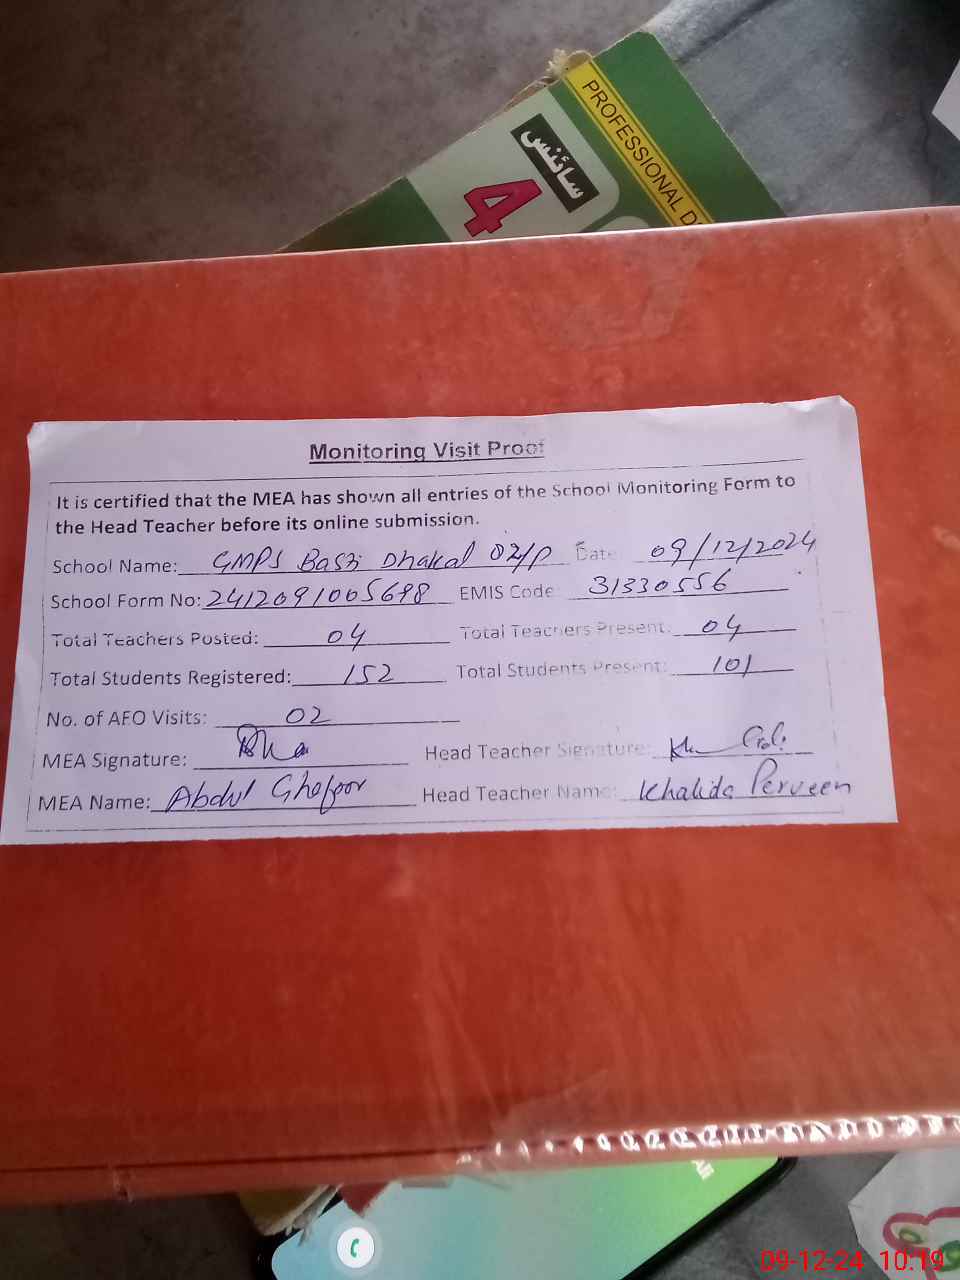 PROFESSIONAL D
سائنس
4
Monitoring Visit Proof
It is certified that the MEA has shown all entries of the School Monitoring Form to
the Head Teacher before its online submission.
School Name: GMPS Basti Dhakal 02/P Date 09/12/2024
School Form No: 2412091005698 EMIS Code 31330556
Total Teachers Posted: 04 Total Teachers Present: 04
Total Students Registered: 152 Total Students Present: 101
No. of AEO Visits: 02
MEA Signature: Head Teacher Signature:
MEA Name: Abdul Ghafoor Head Teacher Name: Khalida Perveen
09-12-24 10:19